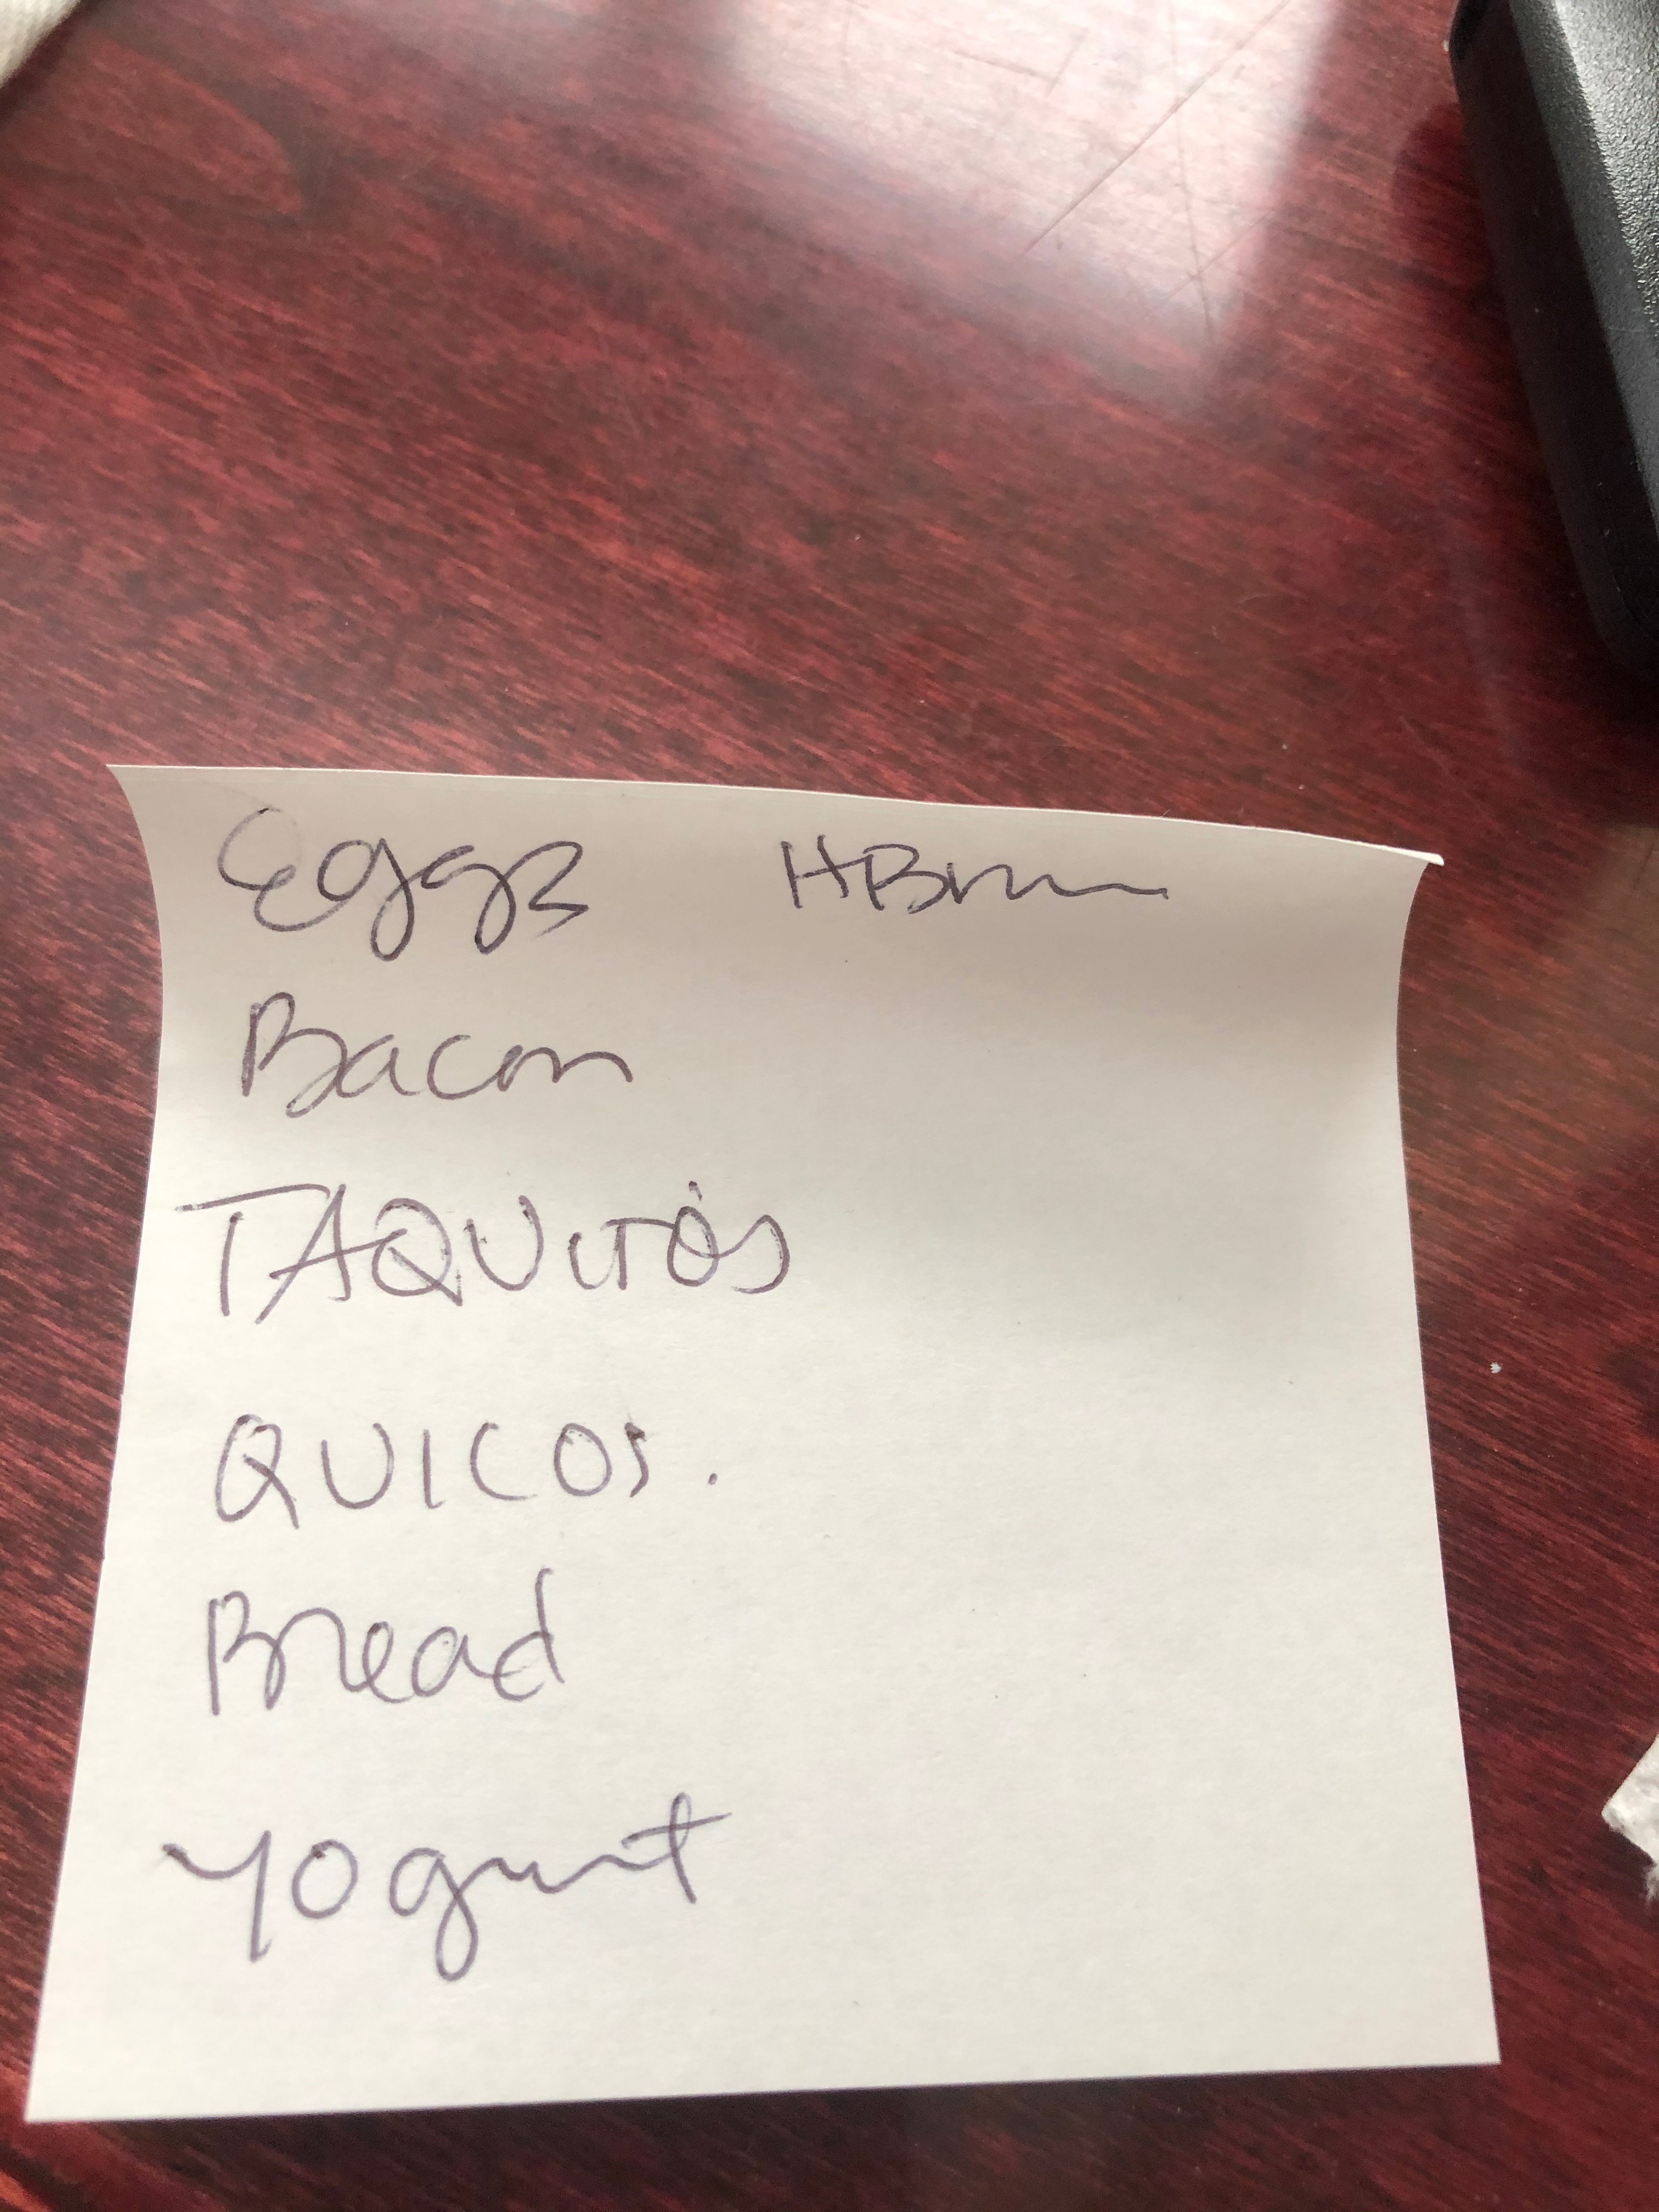 Eggs
Bacon
TAQUITOS
QUICOS.
Bread
Yogurt